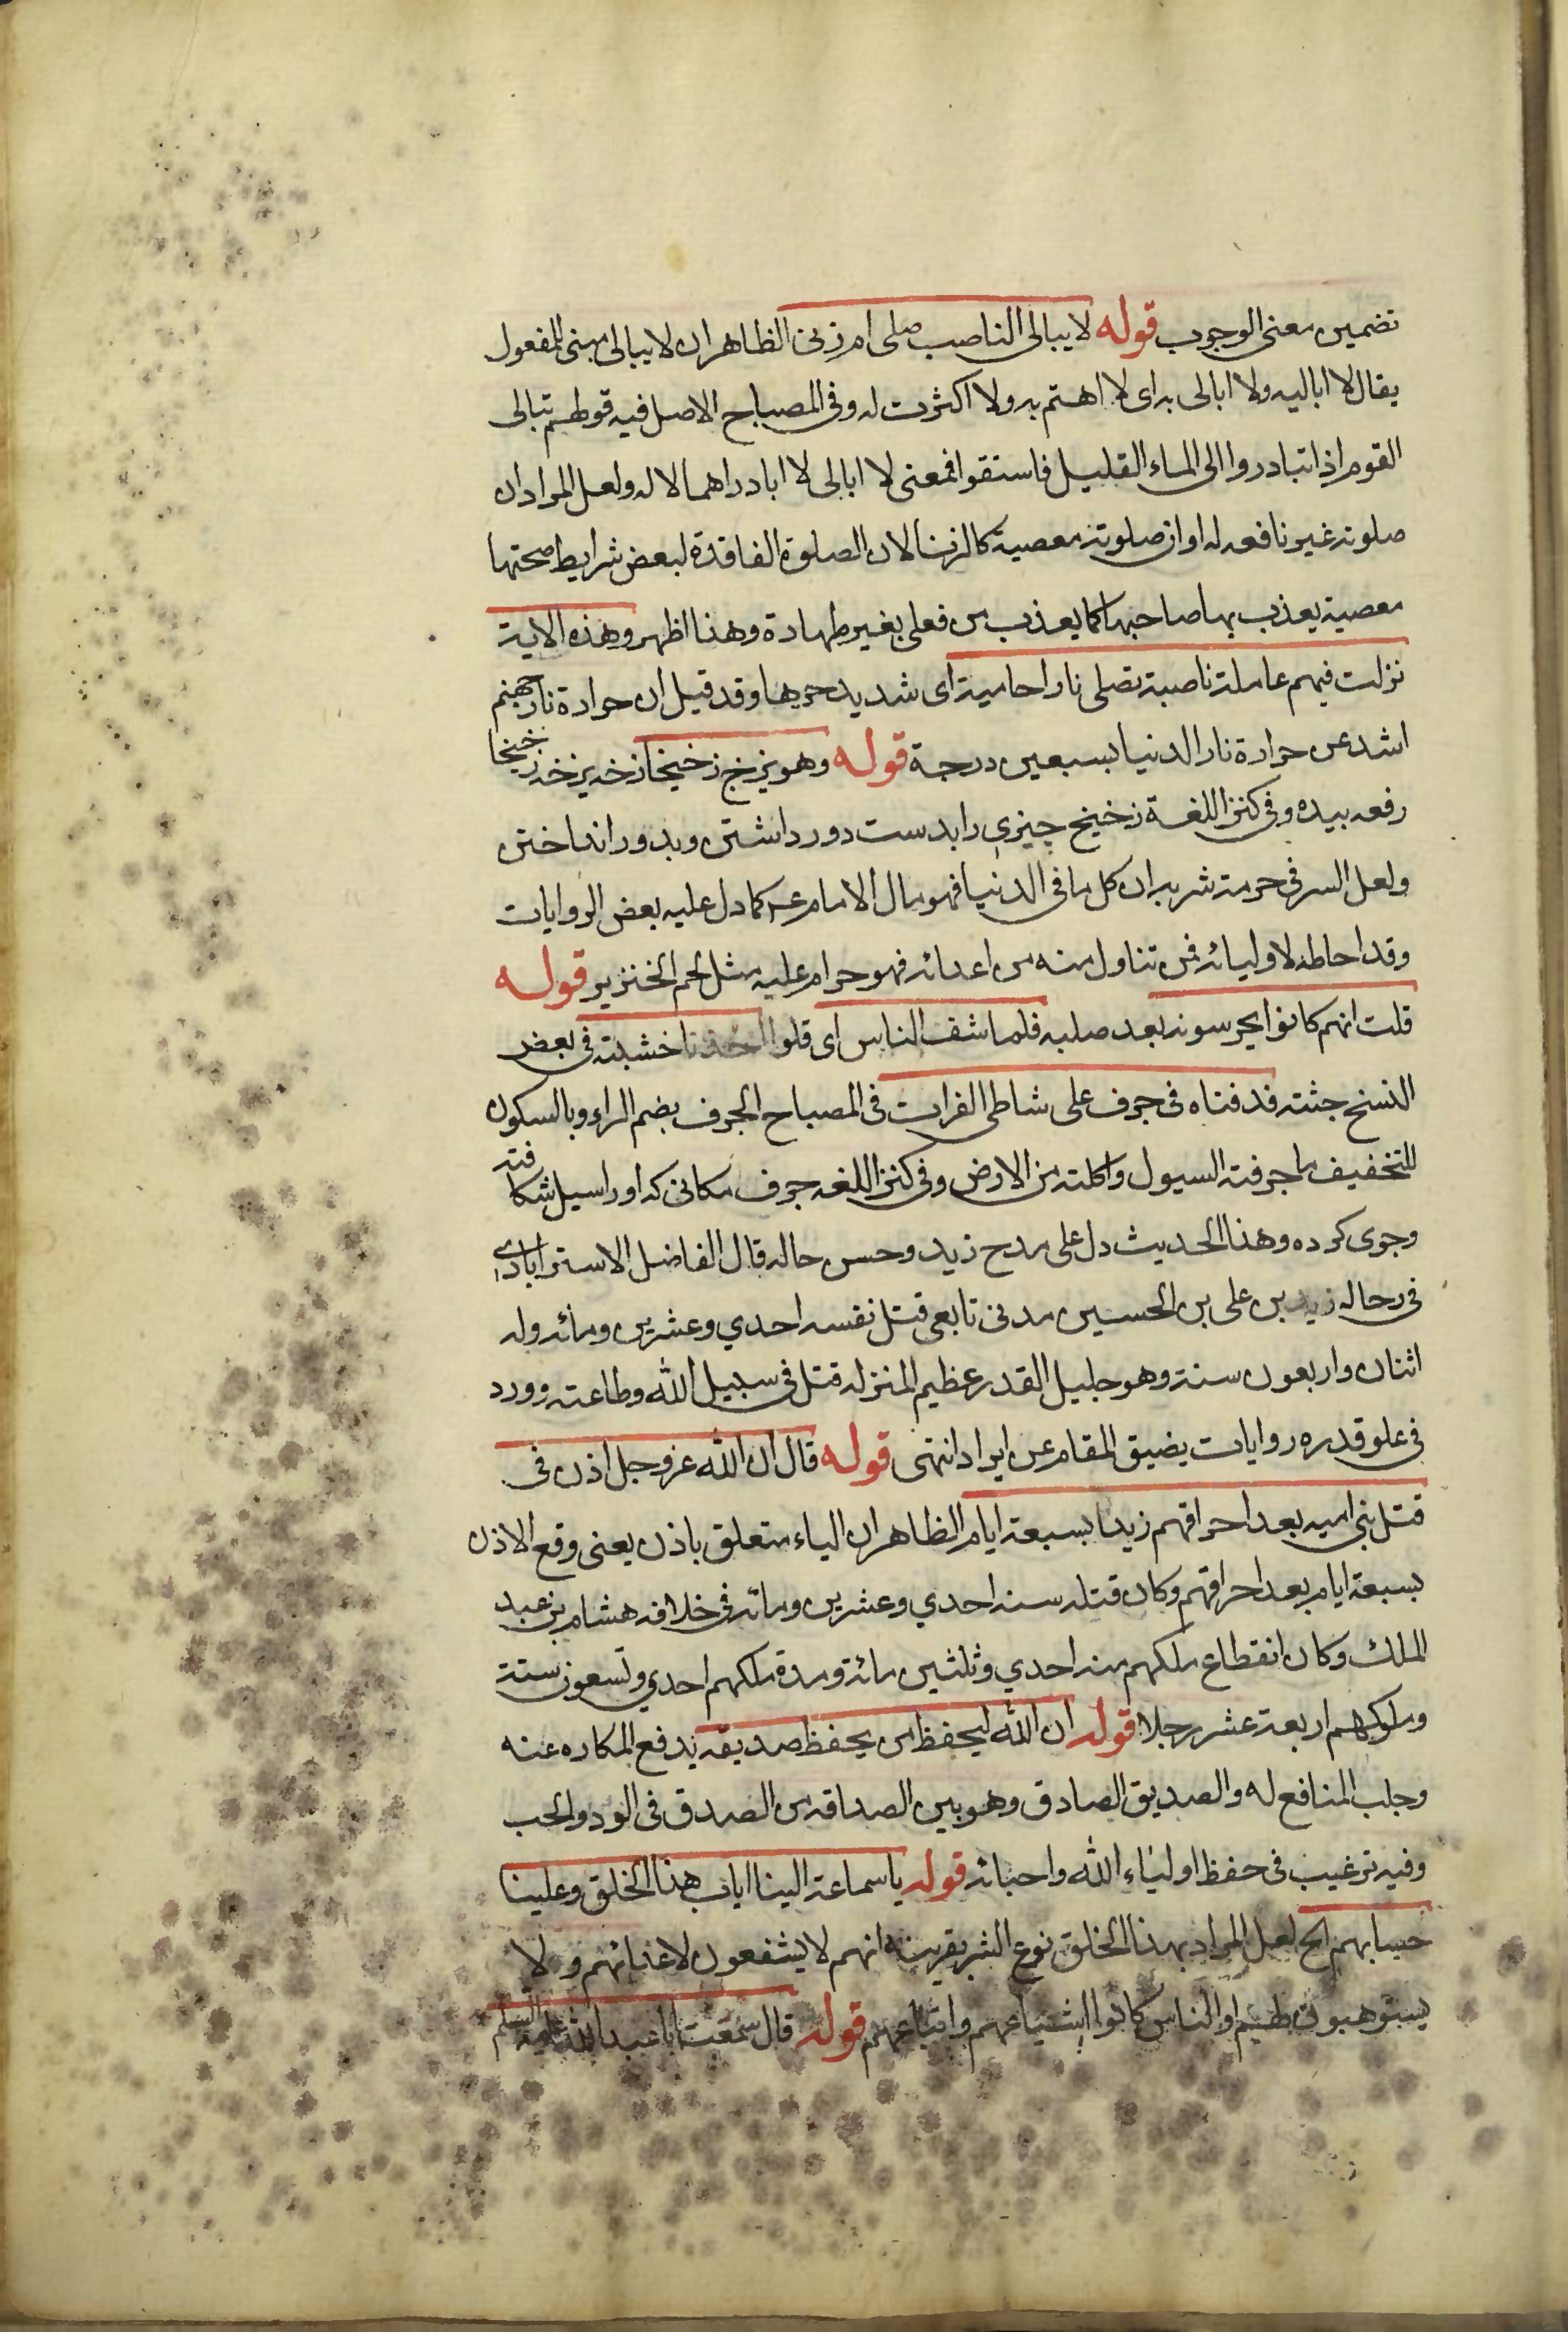 تضمين معنى الوجوب قوله لا يبالى الناصب صلى ام زنى الظاهر ان لا يبالى مبنى للمفعول
يقال لا اباليه ولا ابالى به اى لا اهتم به ولا اكثرت له وفى المصباح الاصل فيه قولهم تبالى
القوم اذا تبادروا الى الماء القليل فاستقوا فمعنى لا ابالى لا ابادر اهمالا له ولعل المراد ان
صلوته غير نافعه له او ان صلوته معصية كالزنا لان الصلوة الفاقدة لبعض شرايط صحتها
معصية يعذب بها صاحبها كما يعذب من فعلى بغير طهارة وهذا اظهر وهذه الاية
نزلت فيهم عاملة ناصبة تصلى نارا حامية اى شديد حرها وقد قيل ان حرارة نار جهنم
اشد من حرارة نار الدنيا بسبعين درجة قوله وهو يزخ زخيخا زخه يزخه زخيخا
رفعه بيده وفى كنز اللغة زخيخ چيزى را بدست دور داشتن وبدور انداختن
ولعل السر فى حرمة شربه ان كل ما فى الدنيا فهو مال الامام ع كما دل عليه بعض الروايات
وقد احاطه لاوليائه فمن تناول منه من اعدائه فهو حرام عليه مثل لحم الخنزير قوله
قلت انهم كانوا يحرسونه بعد صلبه فلما شف الناس اى قلوا اخذنا خشبته فى بعض
النسخ جثته فدفناه فى جرف على شاطى الفرات فى المصباح الجرف بضم الراء وبالسكون
للتخفيف ما جرفته السيول واكلته من الارض وفى كنز اللغه جرف مكانى كه او را سيل شكافته
وجوى كرده وهذا الحديث دل على مدح زيد وحسن حاله قال الفاضل الاسترابادي
فى رجاله زيد بن على بن الحسين مدنى تابعى قتل نفسه احدي وعشرين ومائه وله
اثنان واربعون سنة وهو جليل القدر عظيم المنزله قتل فى سبيل الله وطاعته وورد
فى علو قدره روايات يضيق المقام عن ايراد انتهى قوله قال ان الله عز وجل اذن فى
قتل بنى اميه بعد احراقهم زيدا بسبعة ايام الظاهر ان الباء متعلق باذن يعنى وقع الاذن
بسبعة ايام بعد احراقهم وكان قتله سنه احدي وعشرين ومائه فى خلافه هشام بن عبد
الملك وكان انقطاع ملكهم سنه احدي وثلثين مائة ومدة ملكهم احدي وتسعون سنة
وملوكهم اربعة عشر رجلا قوله ان الله ليحفظ من يحفظ صديقه يدفع المكاره عنه
وجلب المنافع له والصديق الصادق وهو بين الصداقه من الصدق فى الود والحب
وفيه ترغيب فى حفظ اولياء الله واحبائه قوله يا سماعة الينا اياب هذا الخلق وعلينا
حسابهم الخ لعل المراد بهذا الخلق نوع البشر بقرينة انهم لا يشفعون لاعدائهم ولا
يستوهبون لهم او الناس كانوا اشياعهم واتباعهم قوله قال سمعت ابا عبد الله عليه السلم